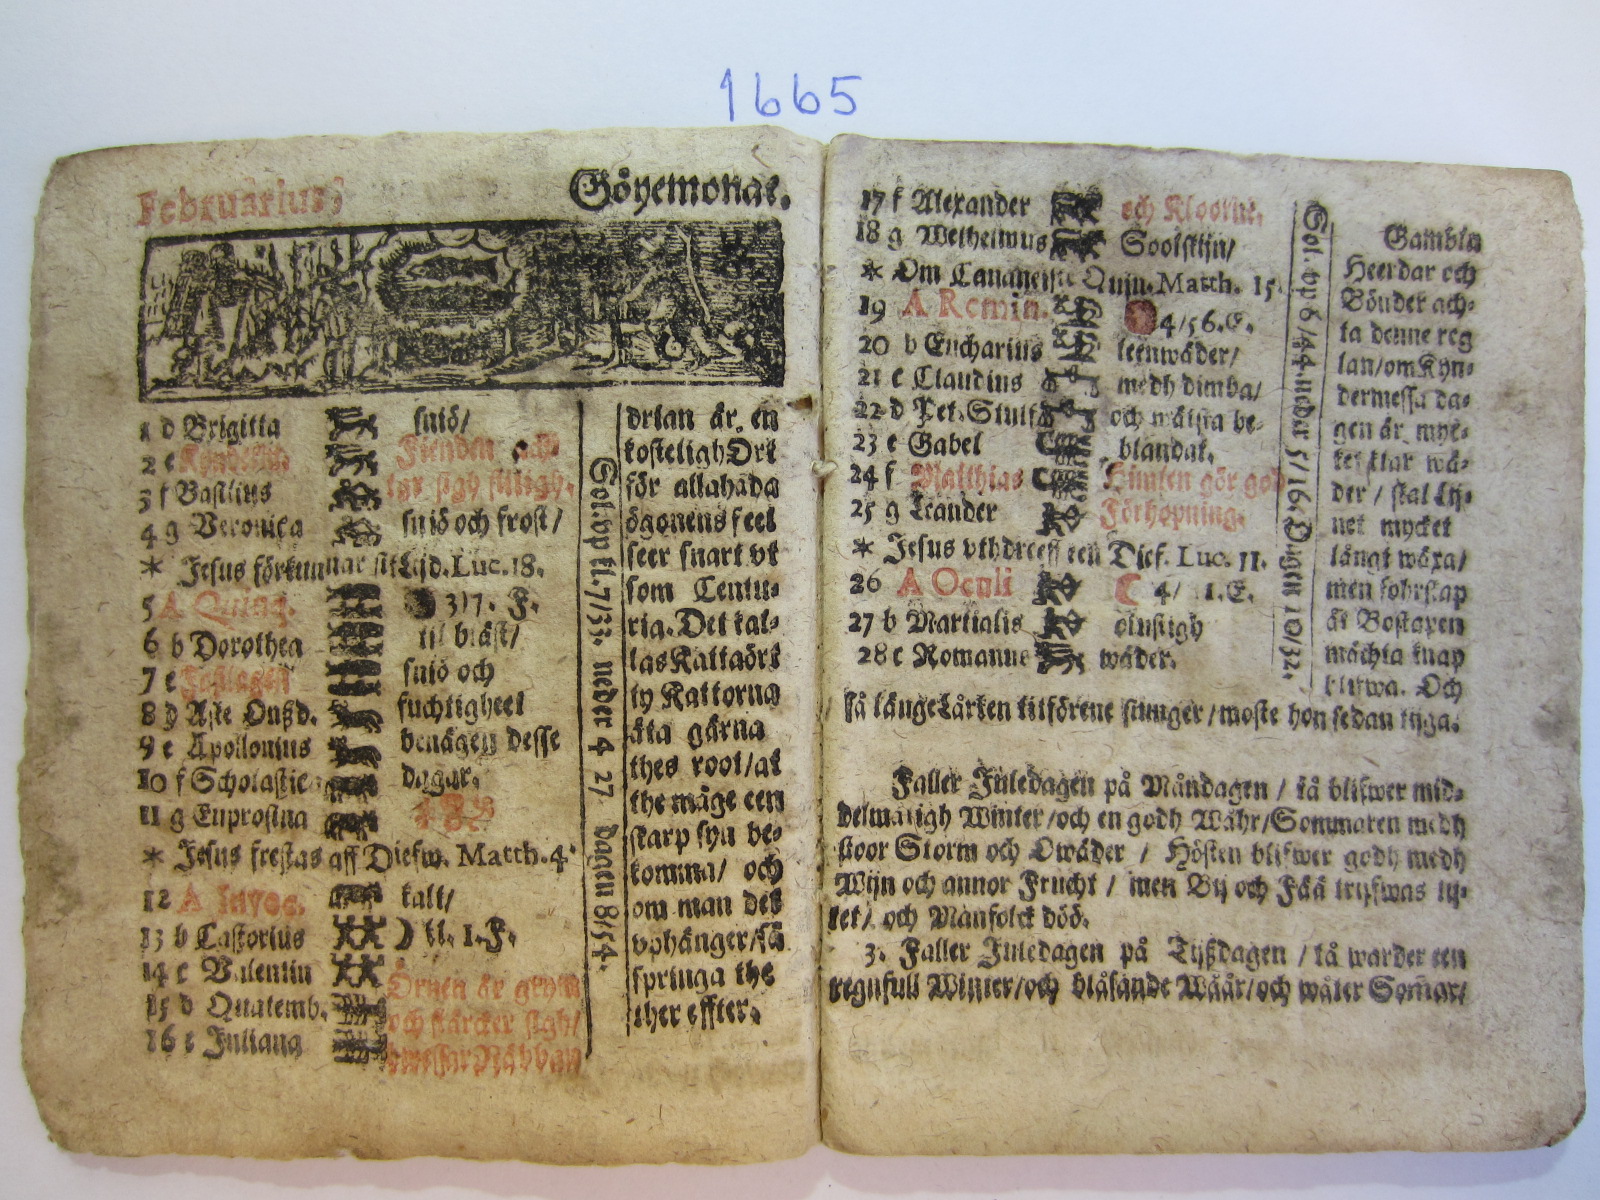 1665
Februarius
Göyemonat.
1 d Brigitta sniö/
2 e Fienden
3 f Basilius sigh
4 g Veronica sniö och frost/
* Jesus förkunnar sit Lijd. Luc. 18.
5 A Quinq. 317. F.
6 b Dorothea til bläst/
7 c sniö och
8 d Aske Onßd. fuchtigheet
9 e Apollonius benägen desse
10 f Scholastica dagar.
11 g Euprosina
* Jesus frestas aff Diefw. Matth. 4.
12 A Invoc. kalt/
13 b Castorius kl. 1. F.
14 c Valentin
15 d Quatemb. Örnen är grym
16 e Juliana och stärcker sigh/
Sol. vp kl. 7/33. neder 4 27 Dagen 8/54.
drian är en
kosteligh Ört
för allahada
ögonens feel
seer snart vt
som Centu-
ria. Det kal-
las Kattaört
ty Kattorna
äta gärna
thes root/at
the måge een
skarp syn be-
komma/ och
om man det
vphänger/så
springa the
ther effter.
17 f Alexander och Kloorne.
18 g Welhelmus Soolskijn/
* Om Cananeiste Quin. Matth. 15.
19 A Remin. 4/56. E.
20 b Eucharius leenwäder/
21 c Claudius medh dimba/
22 d Pet. Stulsä och wätska be-
23 e Gabel blandat.
24 f Matthias Himlen gör god
25 g Leander Förhopning.
* Jesus vthdreeff een Dief. Luc. 11.
26 A Oculi 4/ 1. E.
27 b Martialis olustigh
28 c Romanus wäder.
Sol. vp 6/44 neder 5/16 Dagen 10/32.
Gambla
Heerdar och
Bönder ach-
ta denne reg
lan/om Kyn-
dermessa da-
gen är myc-
ket klar wä-
der / skal Lij-
net mycket
långt wäxa/
men fohrskap
åt Bostapen
mächta knap
blifwa. Och
så länge Lärken tilförene siunger/moste hon sedan tiga.
Faller Juledagen på Måndagen / tå blifwer mid-
delmåtigh Winter/och en godh Wåhr/Sommaren medh
stoor Storm och Owäder / Hösten blifwer godh medh
Wijn och annor Frucht / men Bij och Fää trifwas lij-
tet/ och Manfolck döö.
3. Faller Juledagen på Tijßdagen / tå warder een
regnfull Winter/och blåsande Wåår/och wåter Somar/